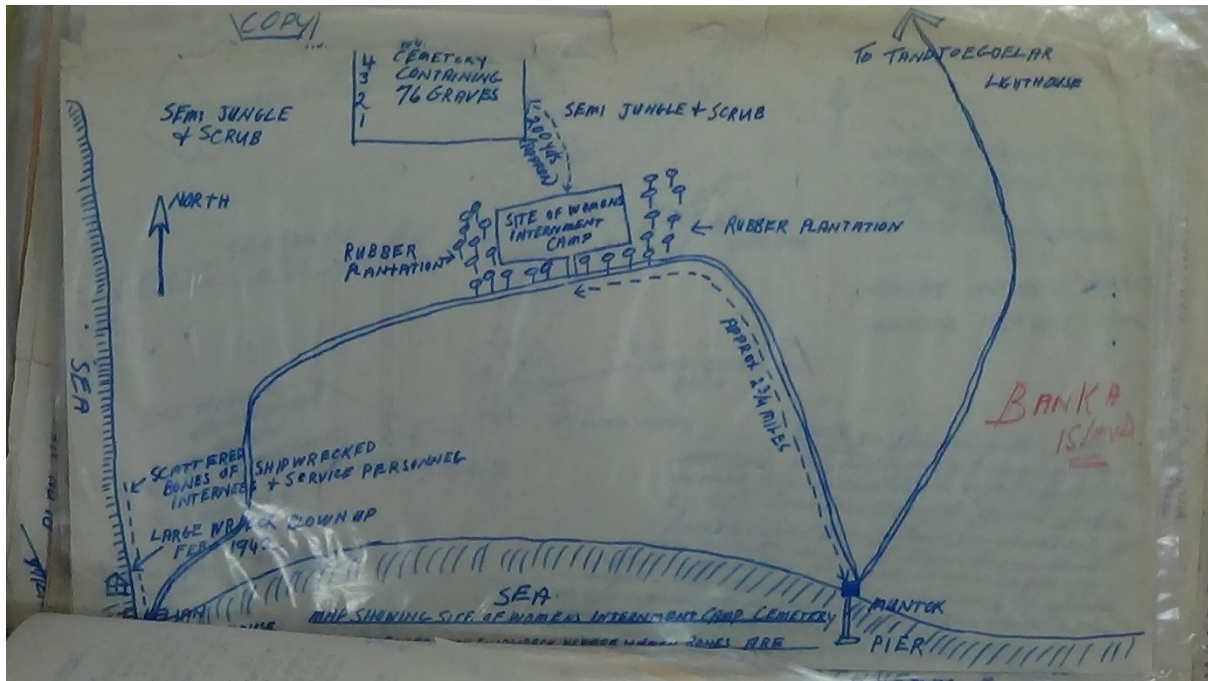 COPY
TO TANDJOEGOELAR
LIGHTHOUSE
4
3
2
1
CEMETORY
CONTAINING
76 GRAVES
SEMI JUNGLE
& SCRUB
200 yds
APPROX
SEMI JUNGLE & SCRUB
NORTH
SITE OF WOMENS
INTERNMENT
CAMP
RUBBER
PLANTATION
RUBBER PLANTATION
APPROX 2 3/4 MILES
SEA
BANKA
ISLAND
SCATTERED
BONES OF SHIPWRECKED
INTERNEES & SERVICE PERSONNEL
LARGE WRECK BLOWN UP
FEB 194
SEA
MUNTOK
PIER
MAP SHOWING SITE OF WOMENS INTERNMENT CAMP CEMETERY
BONES ARE